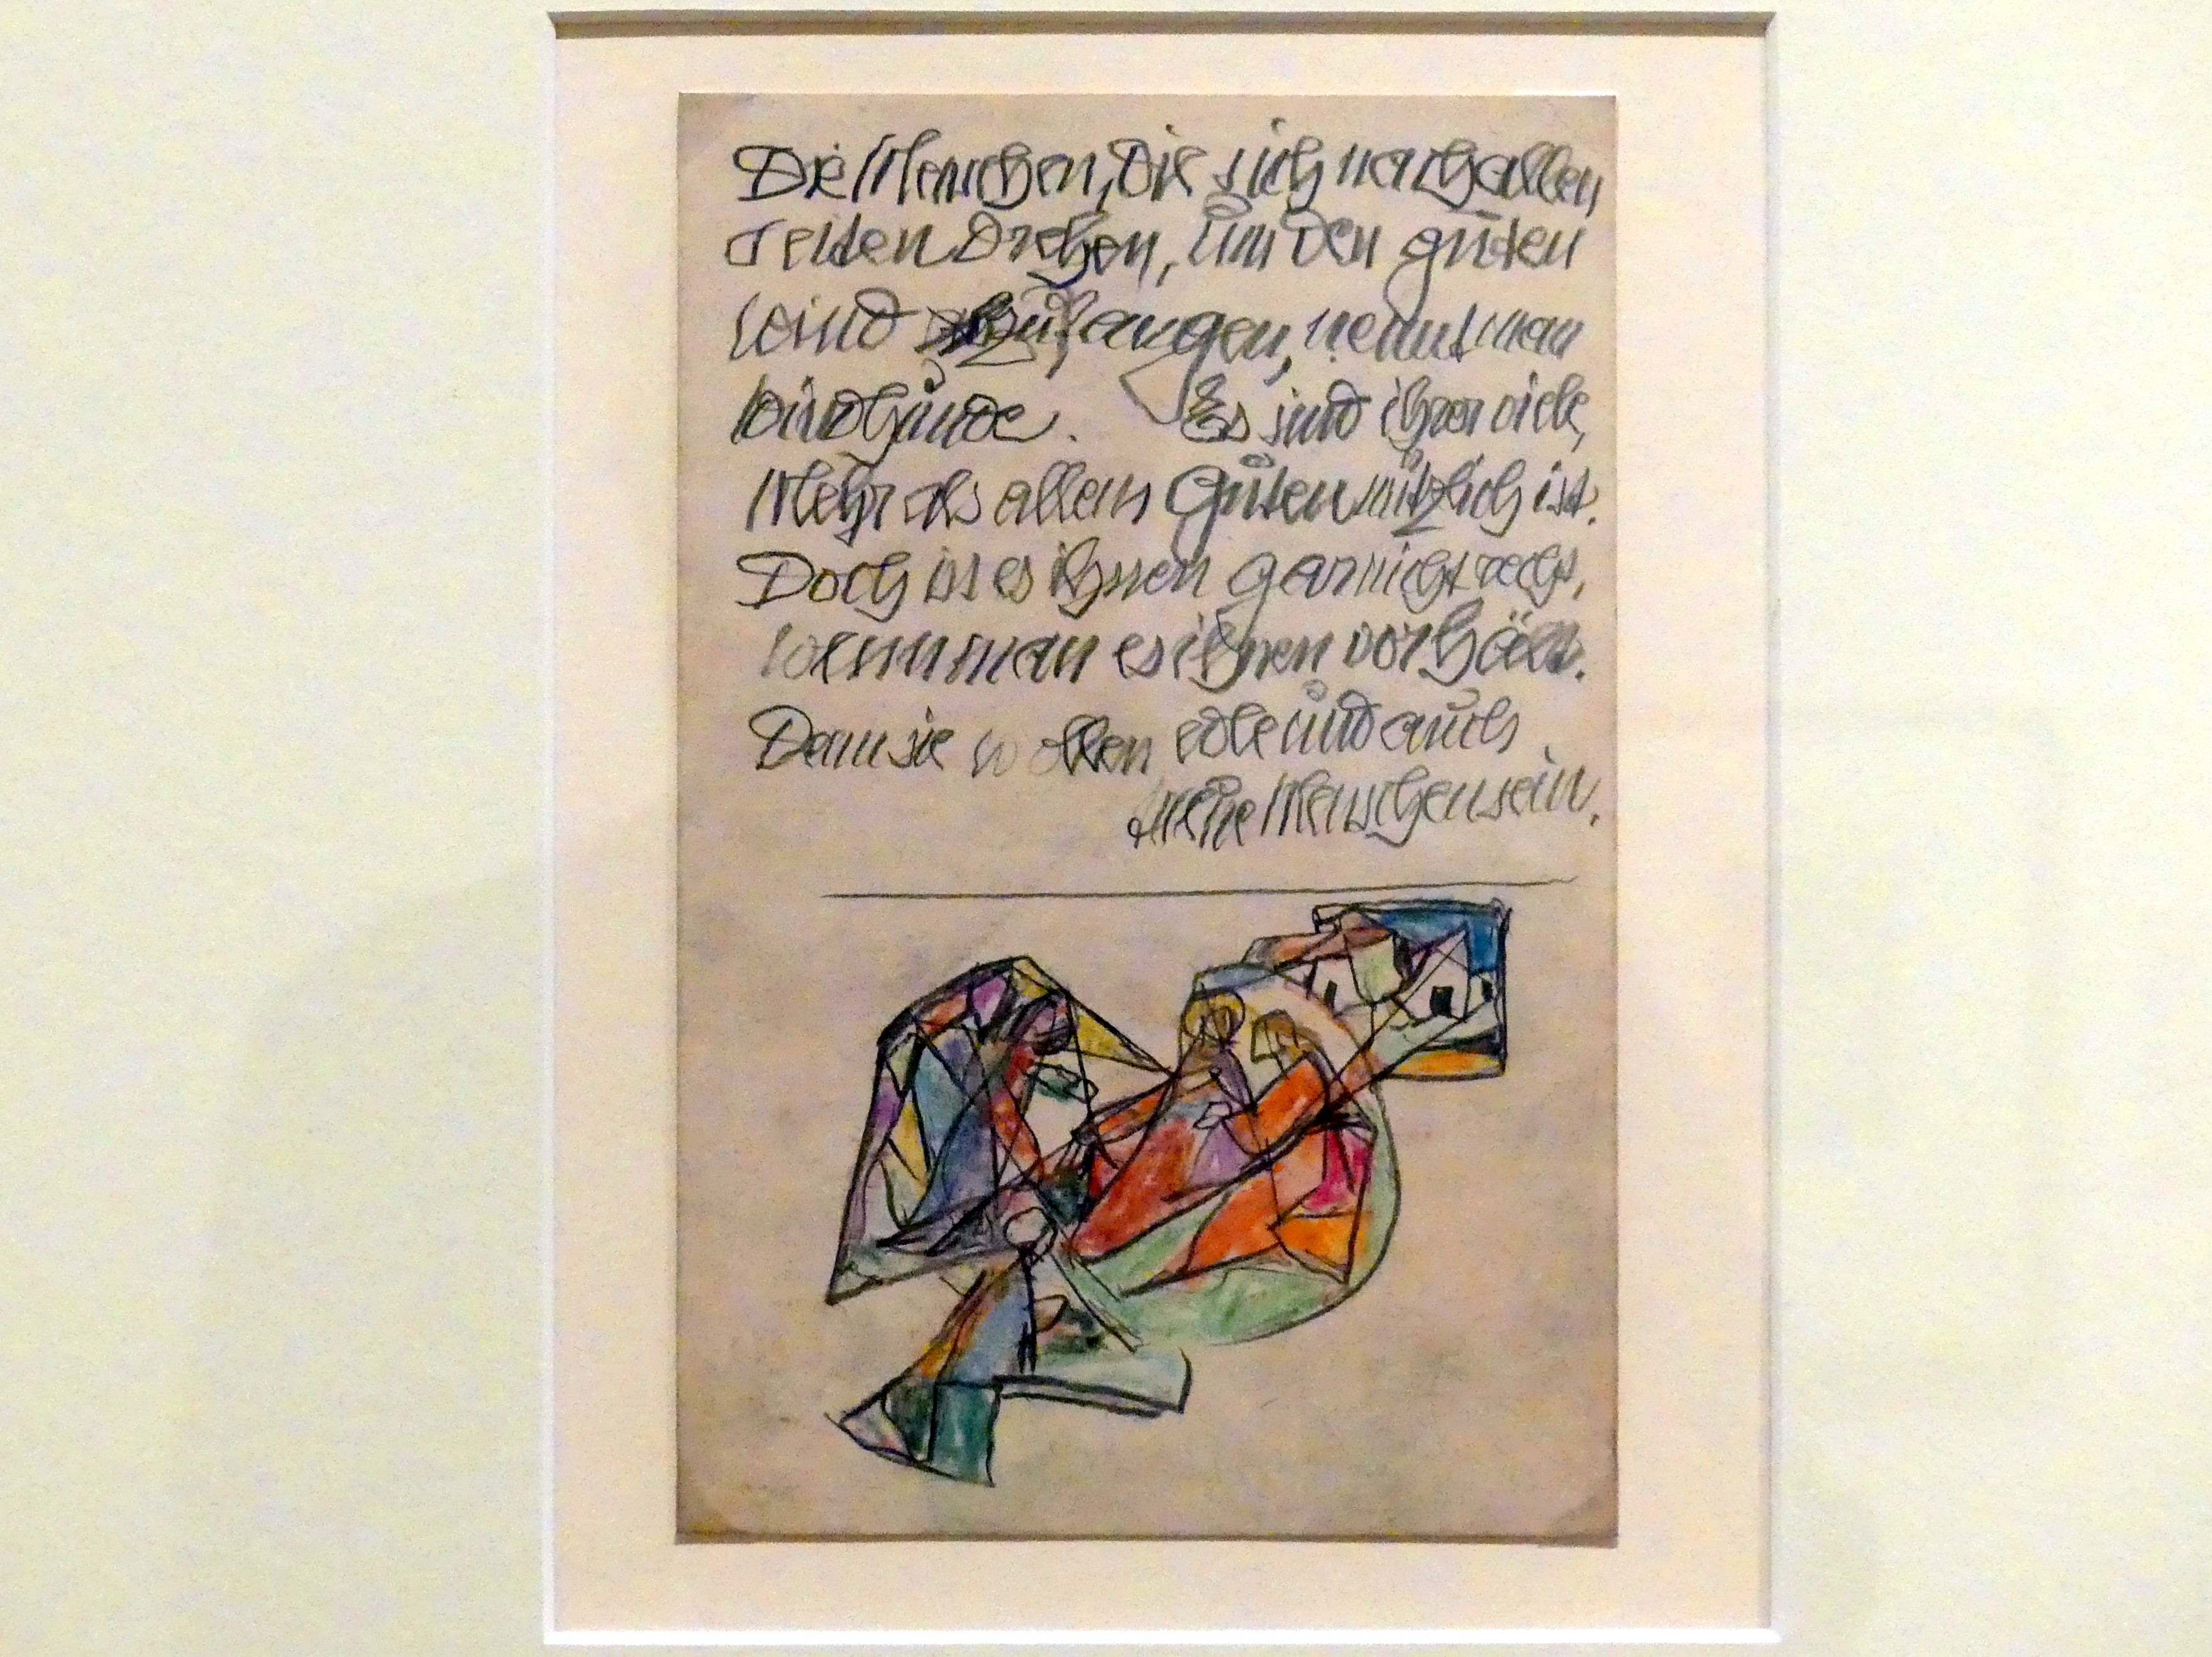 Die Menschen, die sich nach allen
Seiten drehen, um den guten
Wind zu fangen, nennt man
Windhunde. Es sind ihrer viele,
Mehr als allem Guten nützlich ist.
Doch ist es ihnen garnicht recht,
wenn man es ihnen vorhält.
Denn sie wollen edle und auch
Menschen sein.